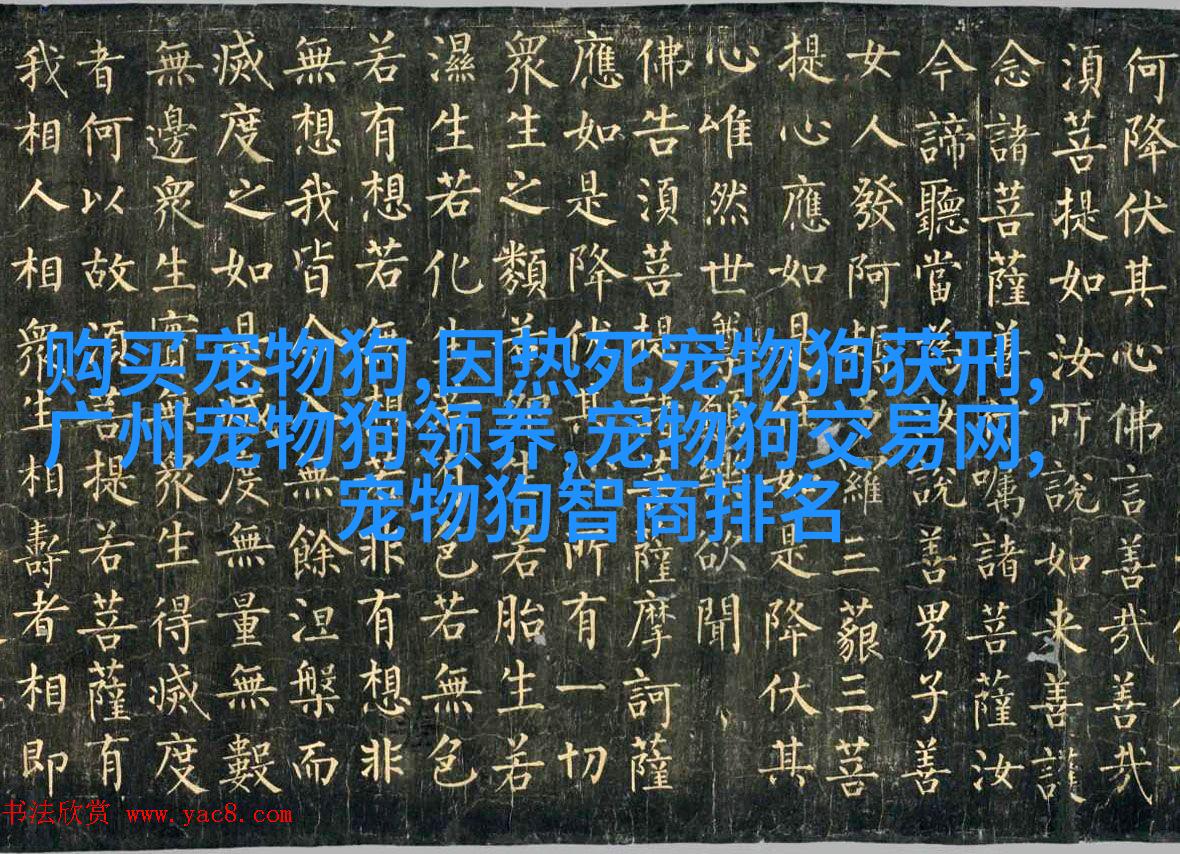 何降伏其心佛言善哉善哉
須菩提如汝所說如来善護
念諸菩薩善付囑諸菩薩汝
今諦聽當為汝說善男子善
女人發阿耨多羅三藐三菩
提心應如是住如是降伏其
心唯然世尊願樂欲聞
佛告須菩提諸菩薩摩訶薩
應如是降伏其心所有一切
衆生之類若卵生若胎生若
濕生若化生若有色若無色
若有想若無想若非有想非
無想我皆令入無餘涅槃而
滅度之如是滅度無量無數
無邊衆生實無衆生得滅度
者何以故須菩提若菩薩有
我相人相衆生相壽者相即
购买宠物狗,因热死宠物狗获刑,
广州宠物狗领养,宠物狗交易网,
宠物狗智商排名
书法欣赏 www.yac8.com